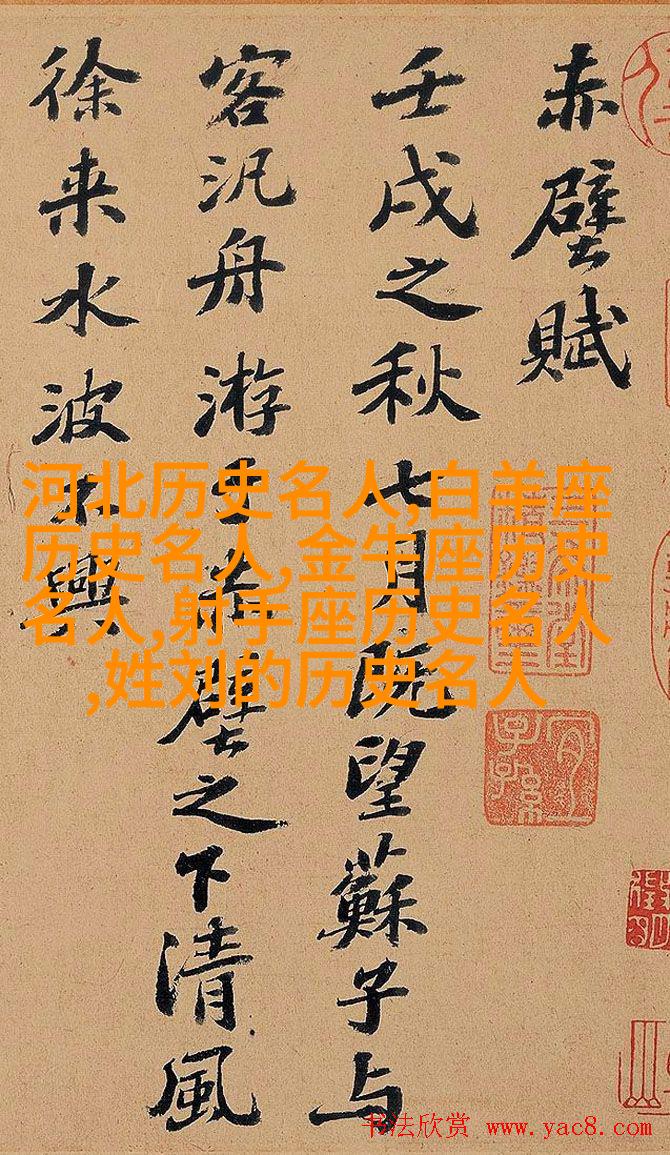 赤壁賦
壬戌之秋七月既望蘇子与
客汎舟游于赤壁之下清風
徐来水波不興
河北历史名人,白羊座
历史名人,金牛座历史
名人,射手座历史名人
,姓刘的历史名人
书法欣赏 www.yac8.com